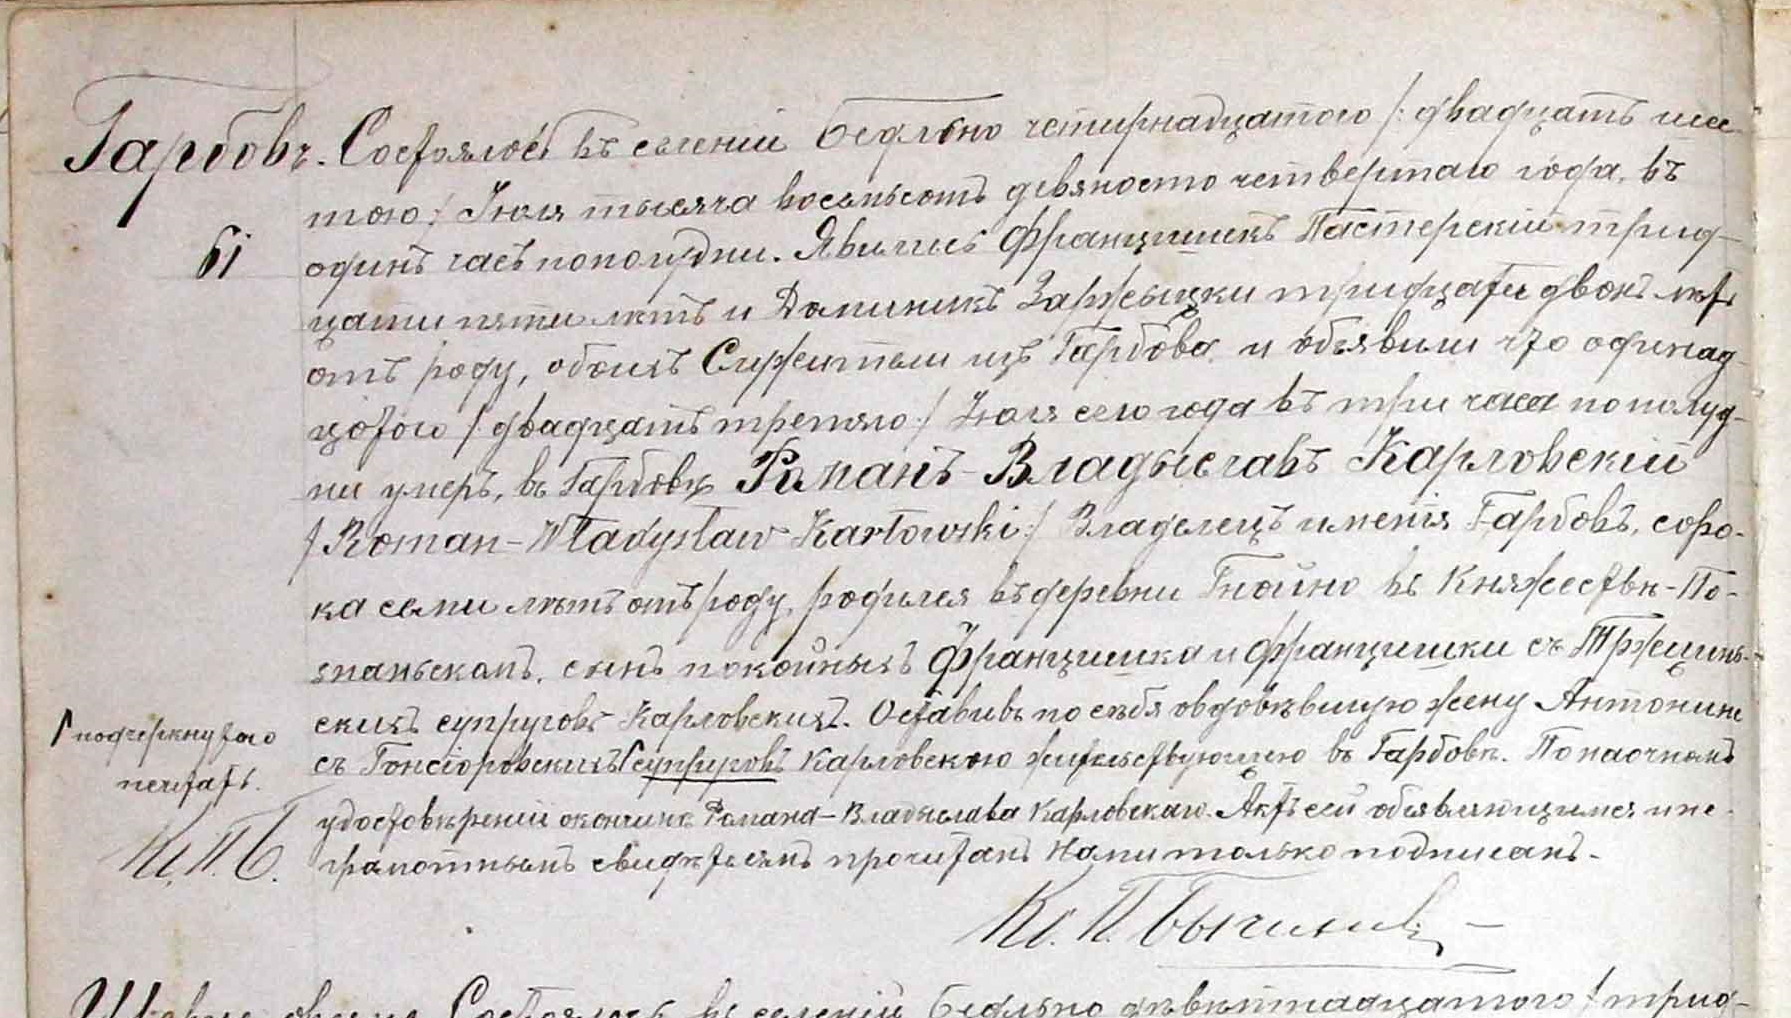 Гарбовъ. Состоялось въ селеніи Бедльно четырнадцатого /: двадцать шес-
61
того :/ Іюля тысяча восемьсотъ девяносто четвертаго года, въ
одинъ часъ пополудни. Явились Францишекъ Пастерскій трид-
цати пяти лѣтъ и Доминикъ Заржыцки тридцати двохъ лѣтъ
отъ роду, обоихъ Служитым изъ Гарбова, и объявили что одинад-
цатого /: двадцать третяго :/ Іюля сего года въ три часа пополуд-
ни умеръ, въ Гарбовѣ Романъ-Владыславъ Карловскій
/: Roman-Władysław Karłowski :/ Владелецъ именія Гарбовъ, соро-
ка семи лѣтъ отъ роду, родился въ деревни Гнойно въ Княжествѣ-По-
знаньскомъ, сынъ покойныхъ Францишка и Францишки съ Тржцинь-
скихъ супруговъ Карловскихъ. Оставивъ по себя овдовѣвшую жену Антонину
съ Гонсіоровскихъ супруговъ Карловскою жительствующою въ Гарбовѣ. По наочномъ
удостовѣреніи окончинѣ Романа-Владыслава Карловскаго. Актъ сей объявляющимъ и не-
грамотнымъ свидѣтелямъ прочитанъ Нами только подписанъ.
подчеркнутого
нечитать.
Кс. П. Б.
Кс. П.
Состоялось въ селеніи Бедльно девятнадцатого /: трид-